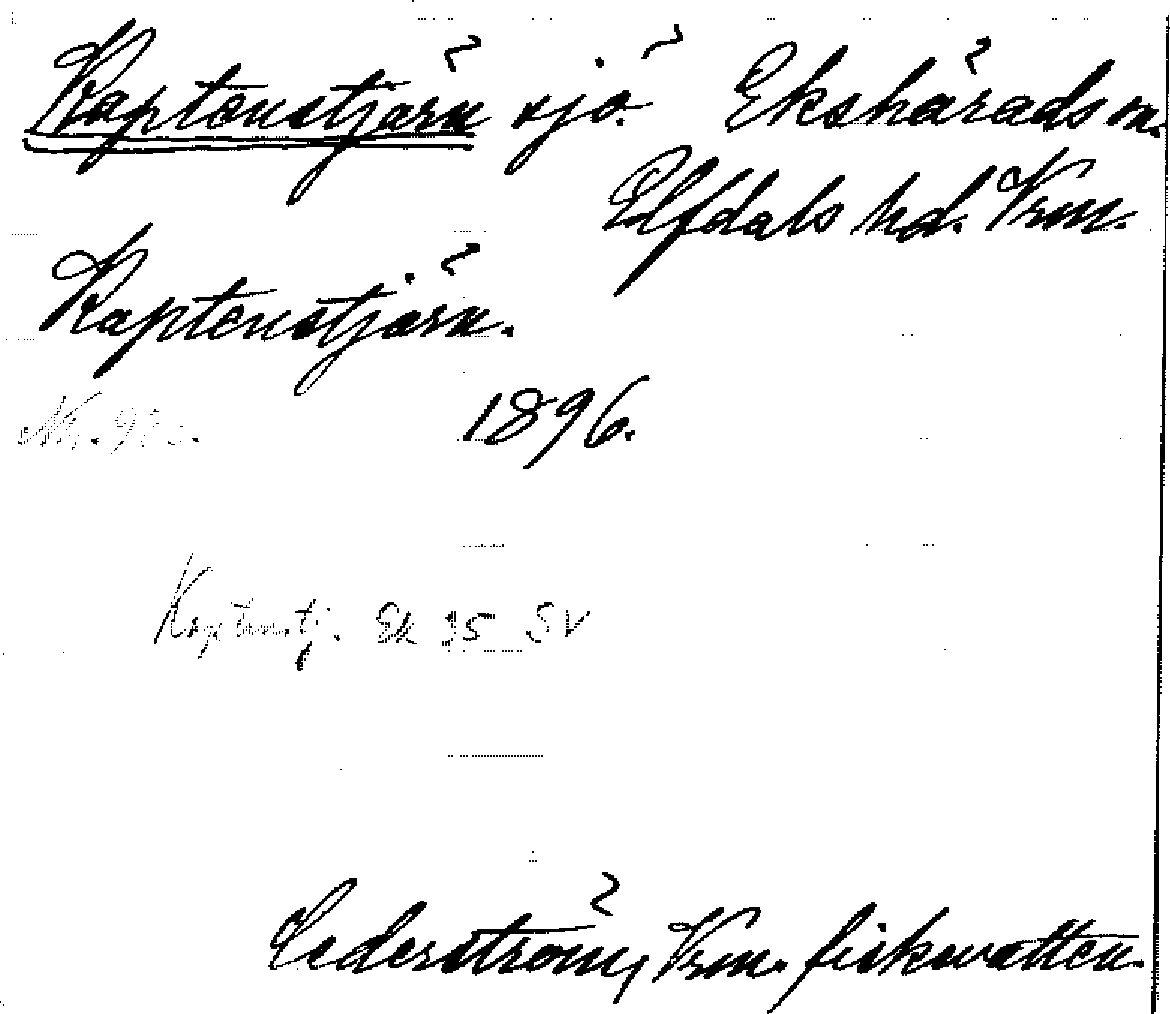 Kaptenstjärn sjö. Ekshärads sn.
Elfdals hd. Vrm.
Kaptenstjärn.
1896.
Kaptenstj. Ek 35 SV
Cederström, Vrm. fiskevatten.